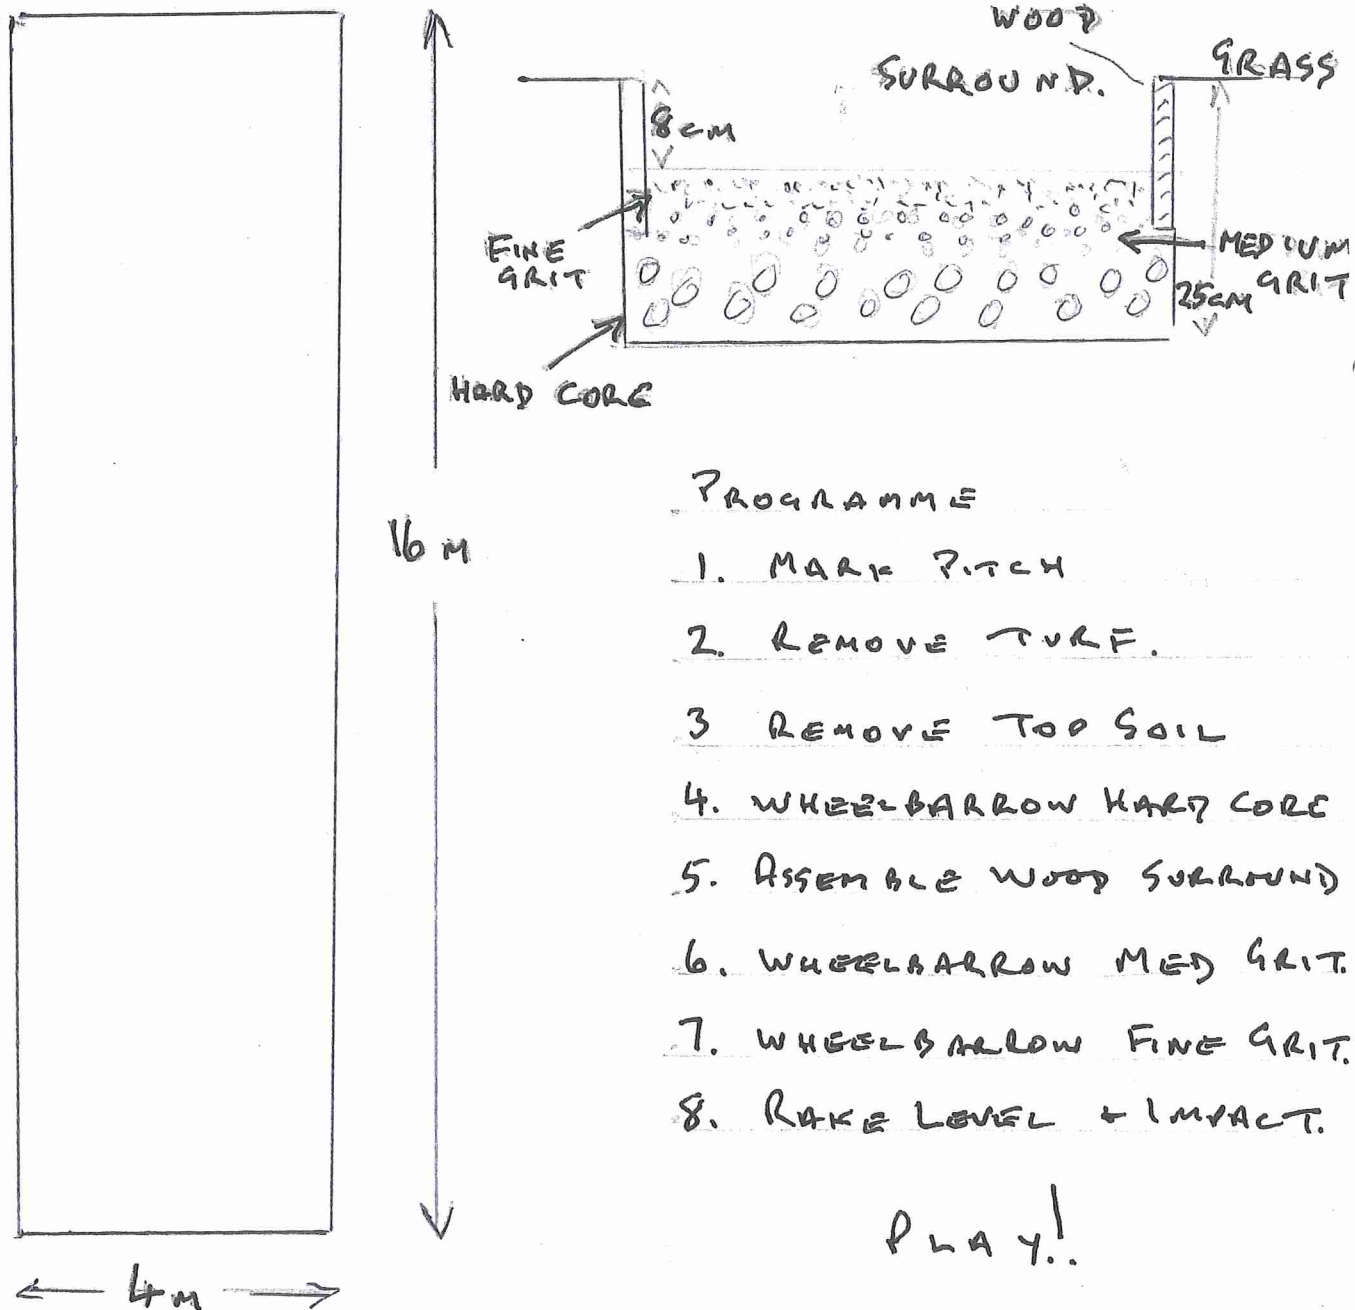 WOOD
SURROUND.
GRASS
8cm
FINE
GRIT
MEDIUM
GRIT
25cm
HARD CORE
16 m
PROGRAMME
1. MARK PITCH
2. REMOVE TURF.
3 REMOVE TOP SOIL
4. WHEELBARROW HARD CORE
5. ASSEMBLE WOOD SURROUND
6. WHEELBARROW MED GRIT.
7. WHEELBARROW FINE GRIT.
8. RAKE LEVEL + IMPACT.
PLAY!.
4m